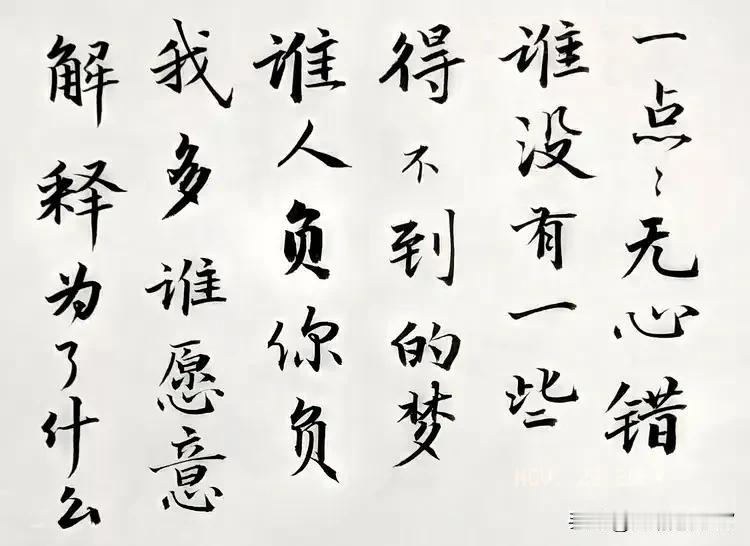 一点〻无心错
谁没有一些
得不到的梦
谁人负你负
我多谁愿意
解释为了什么